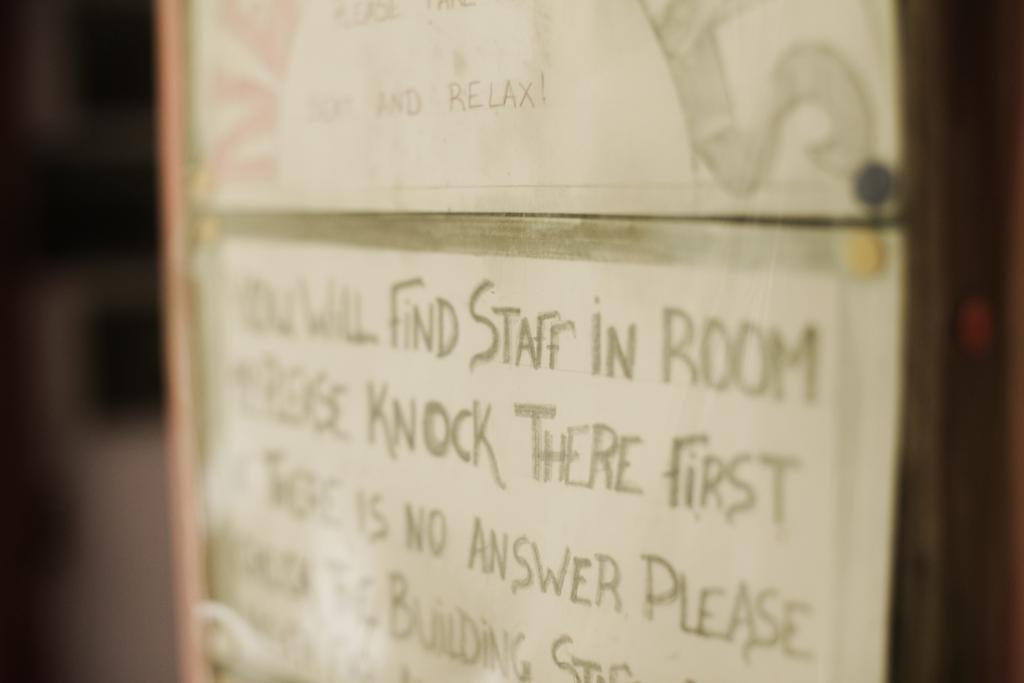 PLEASE TAKE
SEAT AND RELAX!
YOU WILL FIND STAFF IN ROOM
PLEASE KNOCK THERE FIRST
IF THERE IS NO ANSWER PLEASE
THE BUILDING